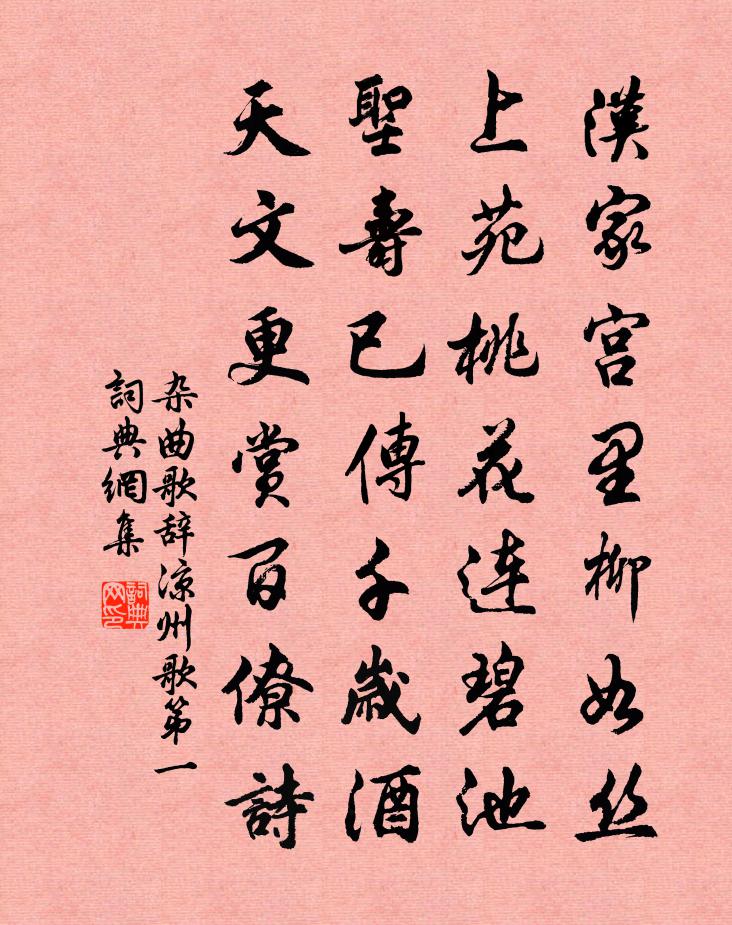 漢家宫里柳如丝
上苑桃花连碧池
聖壽已傳千歲酒
天文更赏百僚詩
杂曲歌辞凉州歌第一
詞典網集
詞典网印